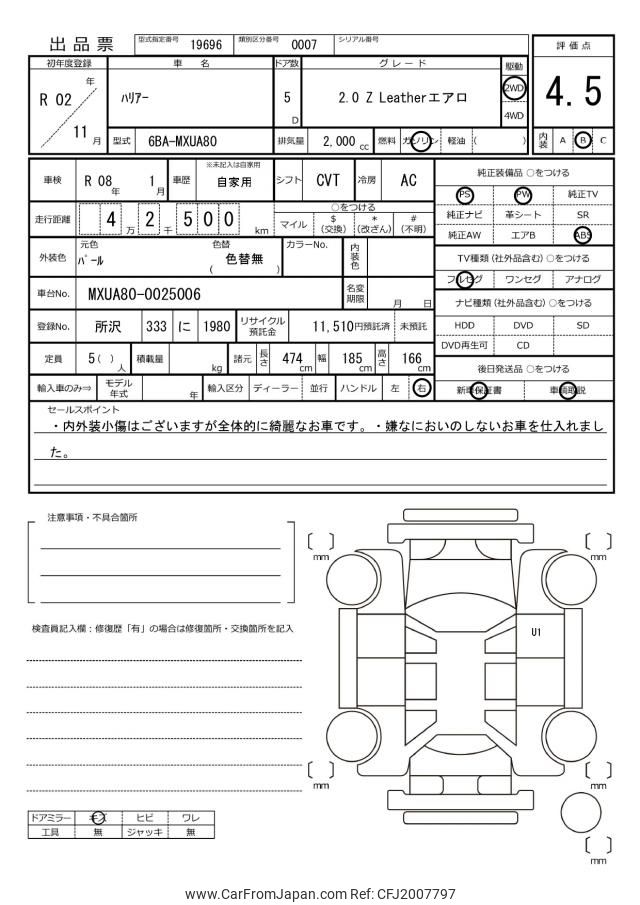 出品票 型式指定番号 19696 類別区分番号 0007 シリアル番号
評価点
4.5
内装 A B C
初年度登録 車名 ドア数 グレード 駆動
R 02 年 ﾊﾘｱｰ 5 D 2.0 Z Leatherエアロ 2WD
11 月 4WD
型式 6BA-MXUA80 排気量 2,000 cc 燃料 ガソリン 軽油 ( )
車検 R 08 年 1 月 車歴 ※未記入は自家用 自家用 シフト CVT 冷房 AC
走行距離 4 万 2 千 5 0 0 km ○をつける
マイル $ (交換) * (改ざん) # (不明)
外装色 元色 ﾊﾟｰﾙ 色替 ( 色替無 ) カラーNo. 内装色
車台No. MXUA80-0025006 名変期限 月 日
登録No. 所沢 333 に 1980 リサイクル預託金 11,510円預託済 未預託
定員 5( ) 人 積載量 kg 諸元 長さ 474 cm 幅 185 cm 高さ 166 cm
輸入車のみ⇒ モデル年式 年 輸入区分 ディーラー 並行 ハンドル 左 右
純正装備品 ○をつける
PS PW 純正TV
純正ナビ 革シート SR
純正AW エアB ABS
TV種類 (社外品含む) ○をつける
フルセグ ワンセグ アナログ
ナビ種類 (社外品含む) ○をつける
HDD DVD SD
DVD再生可 CD
後日発送品 ○をつける
新車保証書 車輌取説
セールスポイント
・内外装小傷はございますが全体的に綺麗なお車です。・嫌なにおいのしないお車を仕入れまし
た。
注意事項・不具合箇所
検査員記入欄：修復歴「有」の場合は修復箇所・交換箇所を記入
mm
mm
U1
mm
mm
mm
ドアミラー キズ ヒビ ワレ
工具 無 ジャッキ 無
www.CarFromJapan.com Ref: CFJ2007797